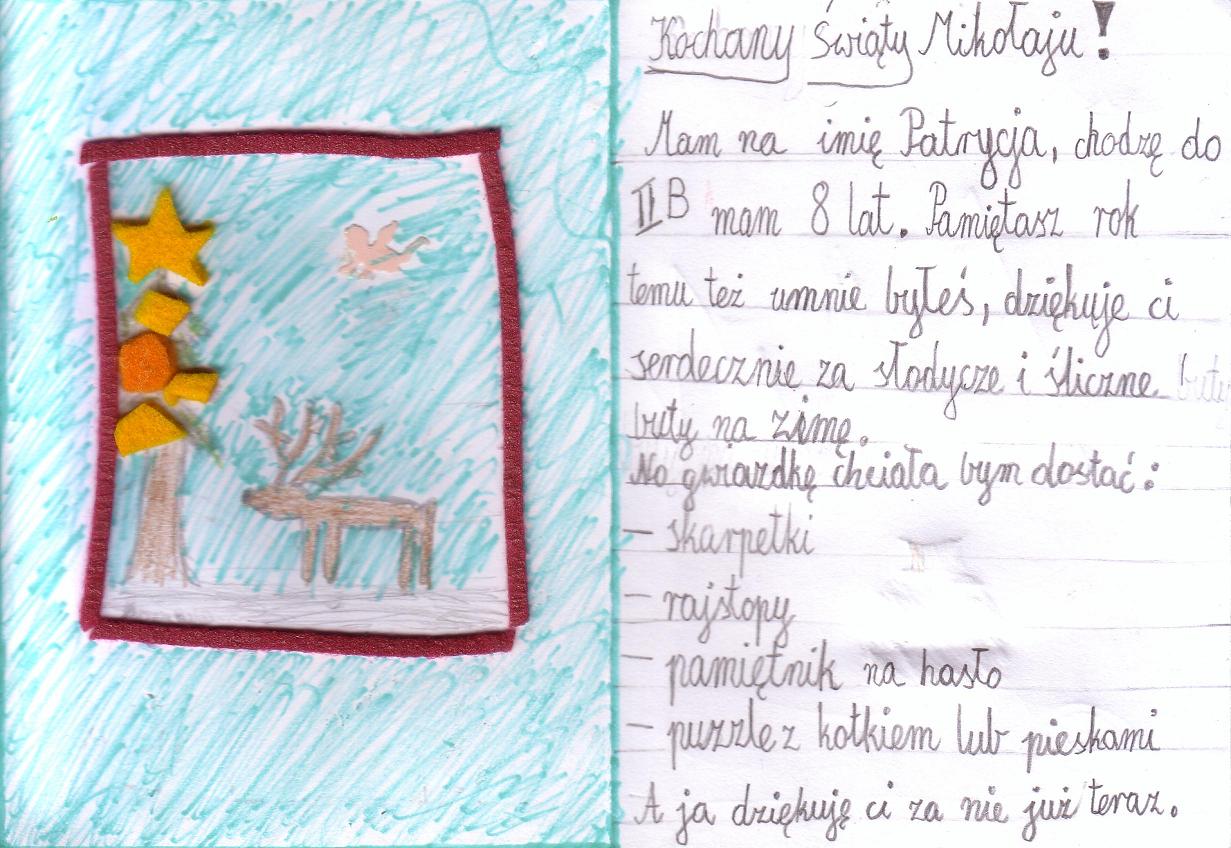 Kochany Święty Mikołaju!
Mam na imię Patrycja, chodzę do
II B mam 8 lat. Pamiętasz rok
temu też umnie byłeś, dziękuje ci
serdecznię za słodycze i śliczne
buty na zimę.
Na gwiazdkę chciała bym dostać:
- skarpetki
- rajstopy
- pamiętnik na hasło
- puzzle z kotkiem lub pieskami
A ja dziękuję ci za nie już teraz.